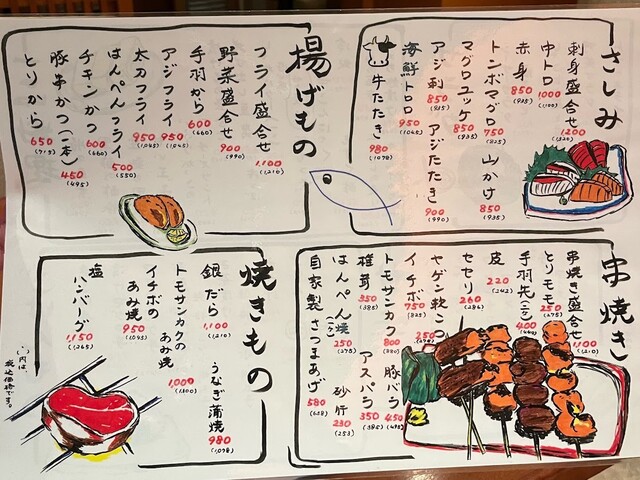 さしみ
刺身盛合せ 1200 (1320)
中トロ 1000 (1100)
赤身 850 (935)
トンボマグロ 750 (825)
山かけ 850 (935)
マグロユッケ 850 (935)
アジ刺 850 (935)
アジたたき 900 (990)
海鮮トロロ 950 (1045)
牛たたき 980 (1078)
揚げもの
フライ盛合せ 1,100 (1,210)
野菜盛合せ 900 (990)
手羽から 600 (660)
アジフライ 950 (1,045)
太刀フライ 950 (1,045)
はんぺんフライ 500 (550)
チキンかつ 600 (660)
豚串かつ(一本) 450 (495)
とりから 650 (715)
串焼き
串焼き盛合せ 1,100 (1,210)
とりモモ 250 (275)
手羽先(二ケ) 400 (440)
皮 220 (242)
セセリ 260 (286)
ヤゲン軟こつ
イチボ 750 (825)
トモサンカク 800 (880)
豚バラ 450 (495)
椎茸 350 (385)
アスパラ 350 (385)
はんぺん焼(一ケ) 250 (275)
砂肝 230 (253)
自家製さつまあげ 580 (638)
焼きもの
銀だら 1,100 (1,210)
うなぎ蒲焼 980 (1,078)
トモサンカクのあみ焼 1,000 (1,100)
イチボのあみ焼 950 (1,045)
塩ハンバーグ 1,150 (1,265)
( )内は、税込価格です。